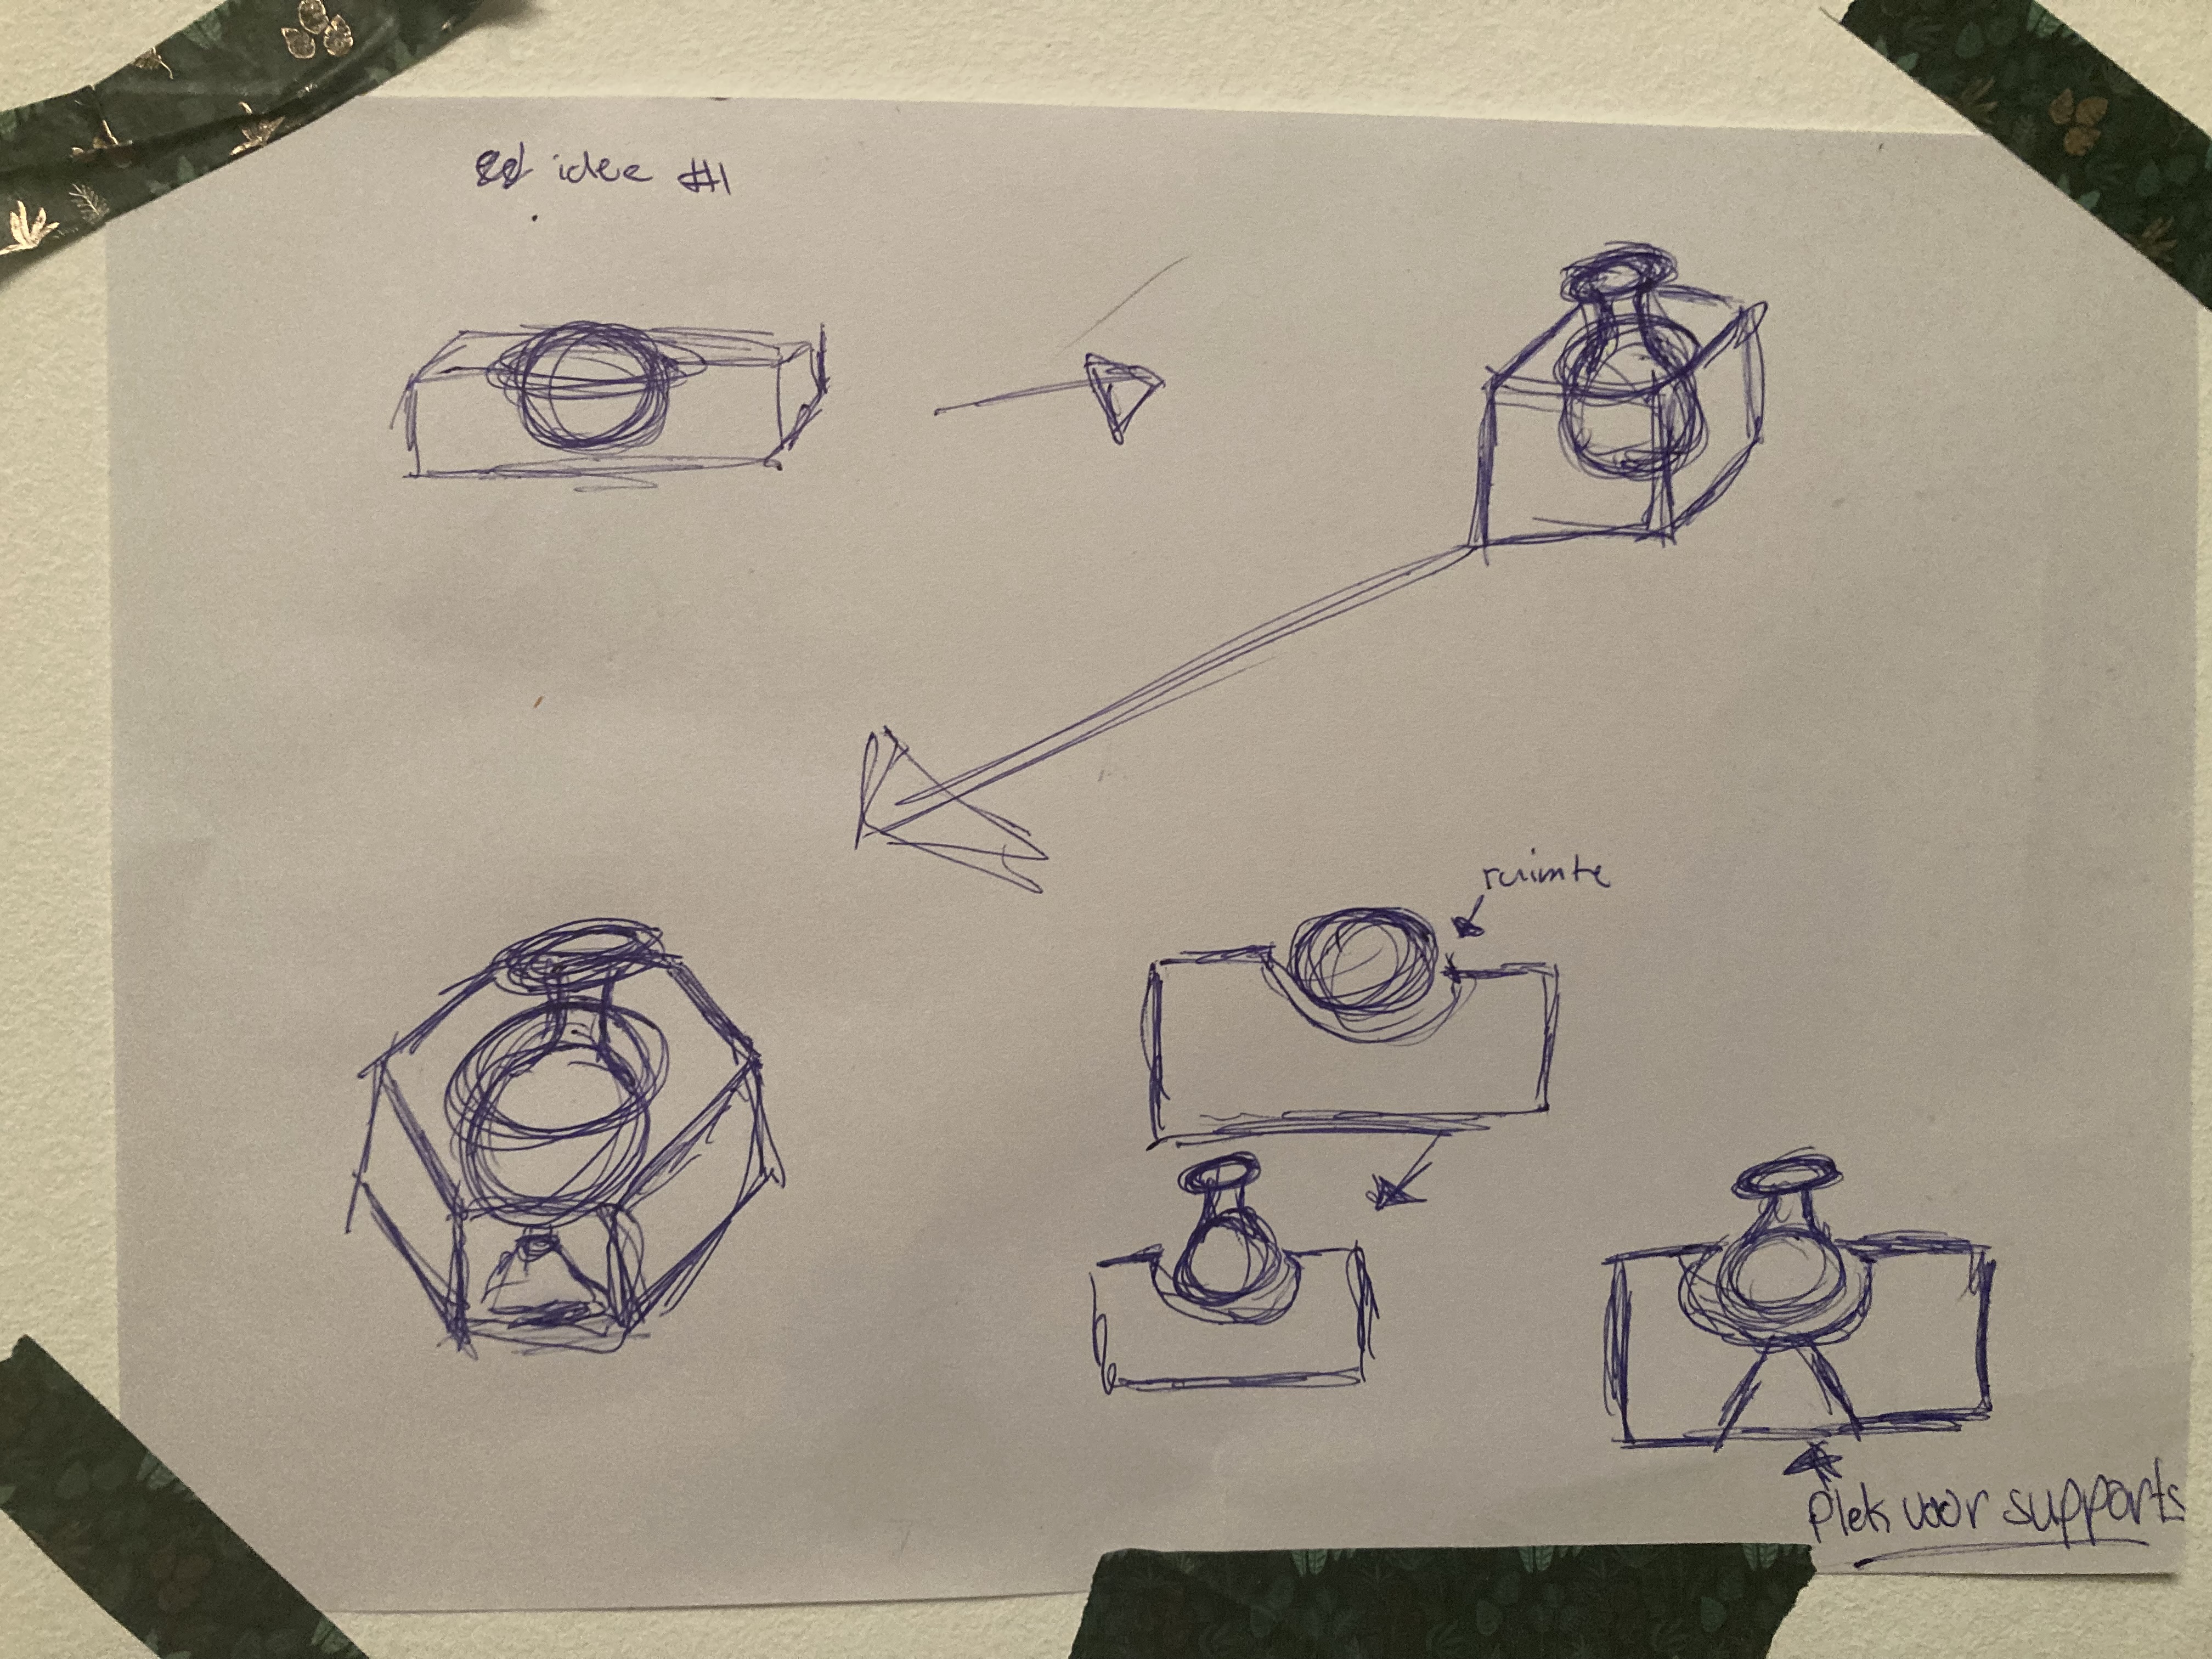 idee #1
ruimte
Plek voor supports